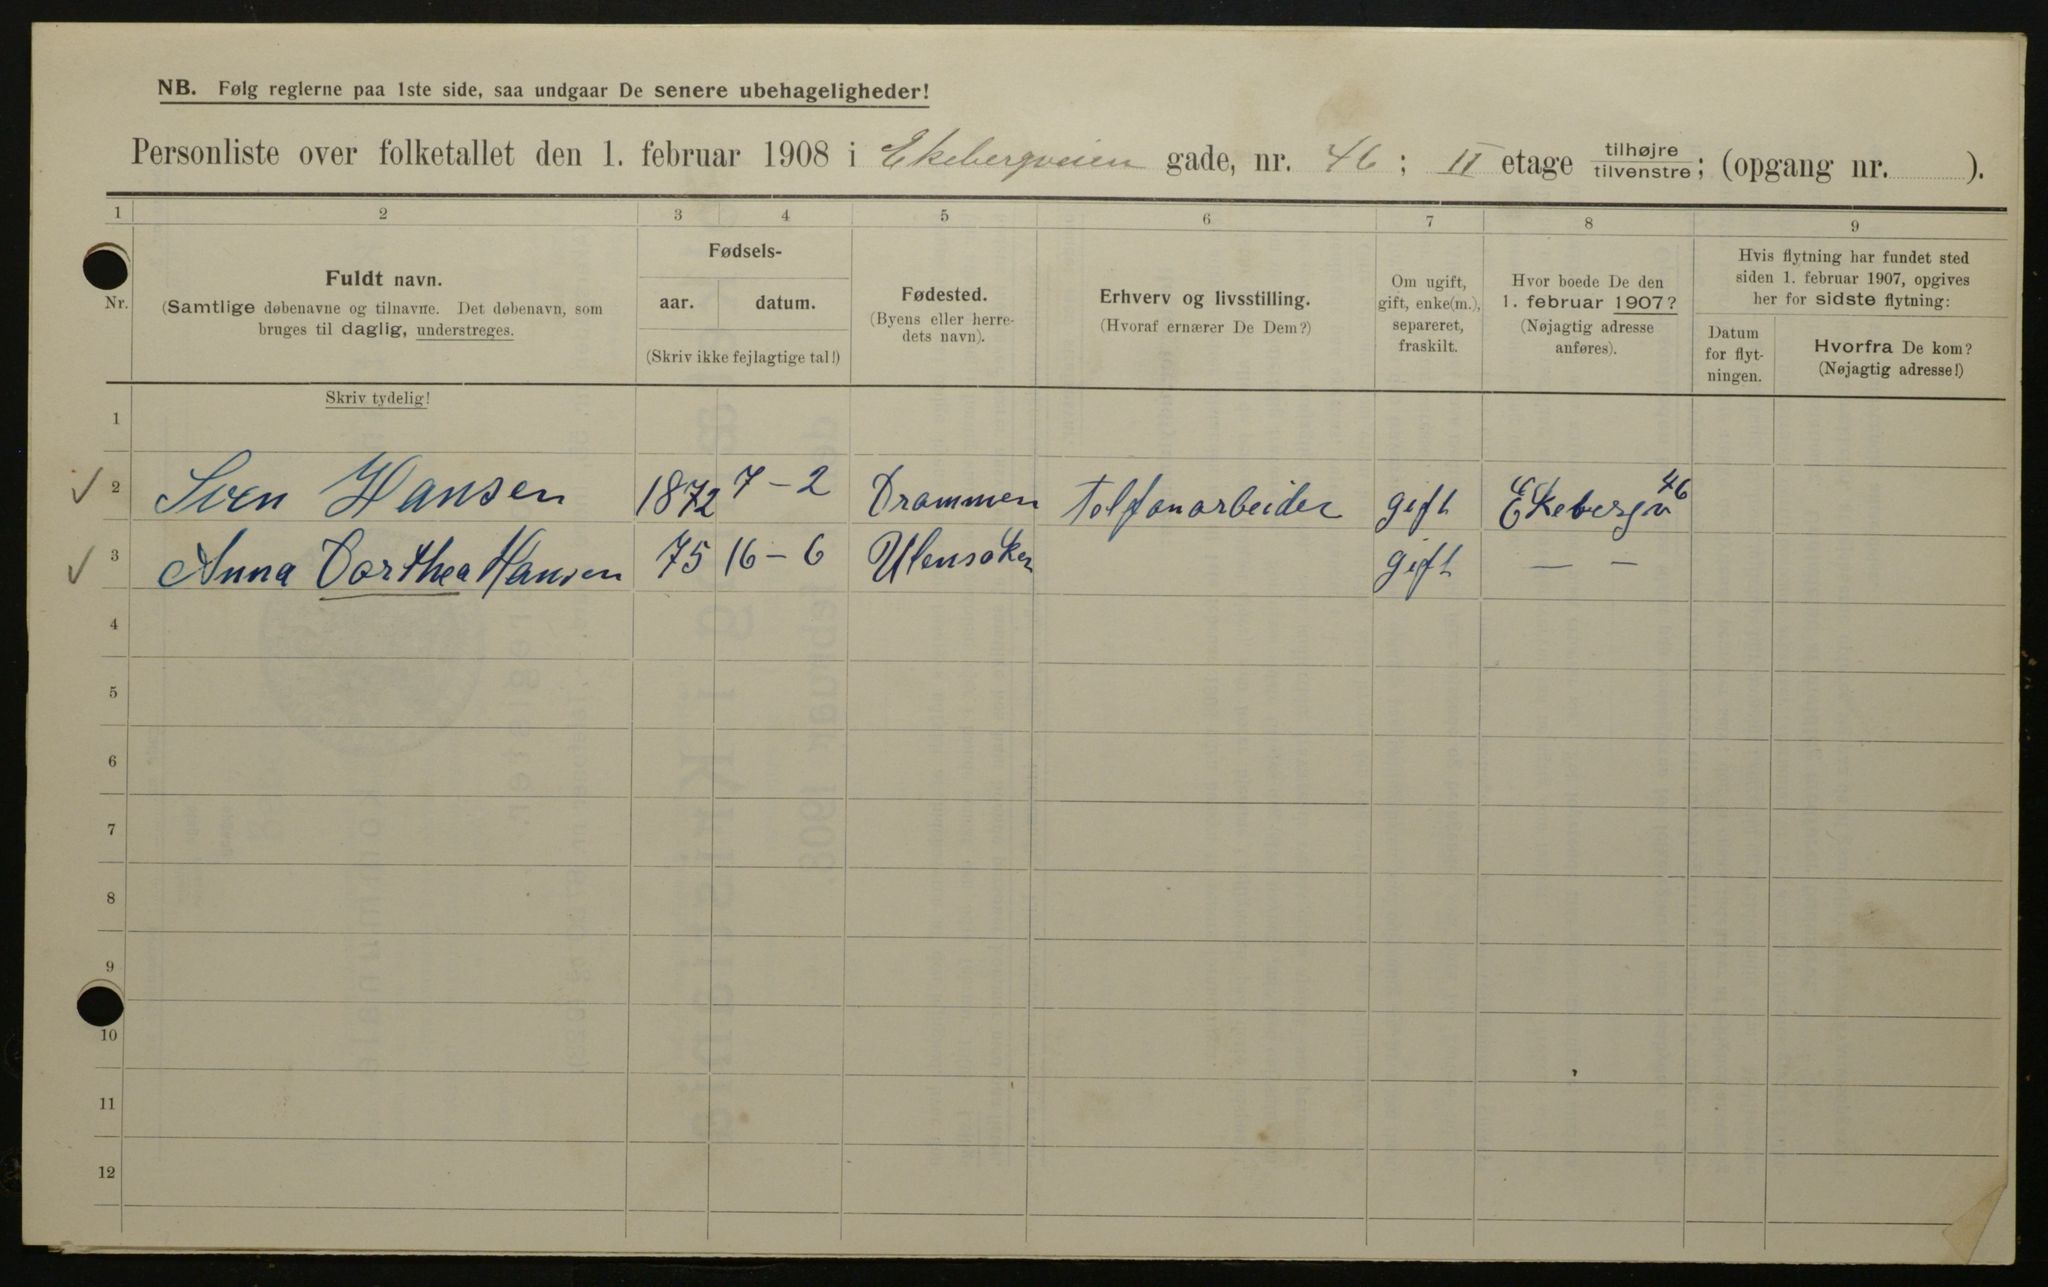 NB. Følg reglerne paa 1ste side, saa undgaar De senere ubehageligheder!
Personliste over folketallet den 1. februar 1908 i Ekebergveien gade, nr. 46; II etage tilhøjre/tilvenstre; (opgang nr. ).
1 2 3 4 5 6 7 8 9
Nr.
Fuldt navn.
(Samtlige døbenavne og tilnavne. Det døbenavn, som
bruges til daglig, understreges.
Skriv tydelig!
Fødsels-
aar. datum.
(Skriv ikke fejlagtige tal!)
Fødested.
(Byens eller herre-
dets navn).
Erhverv og livsstilling.
(Hvoraf ernærer De Dem?)
Om ugift,
gift, enke(m.),
separeret,
fraskilt.
Hvor boede De den
1. februar 1907?
(Nøjagtig adresse
anføres).
Hvis flytning har fundet sted
siden 1. februar 1907, opgives
her for sidste flytning:
Datum
for flyt-
ningen.
Hvorfra De kom?
(Nøjagtig adresse!)
1
2 Sven Hansen 1872 7-2 Drammen telfonarbeider gift Ekebergv 46
3 Anna Dorthea Hansen 75 16-6 Ulensaker gift — —
4
5
6
7
8
9
10
11
12